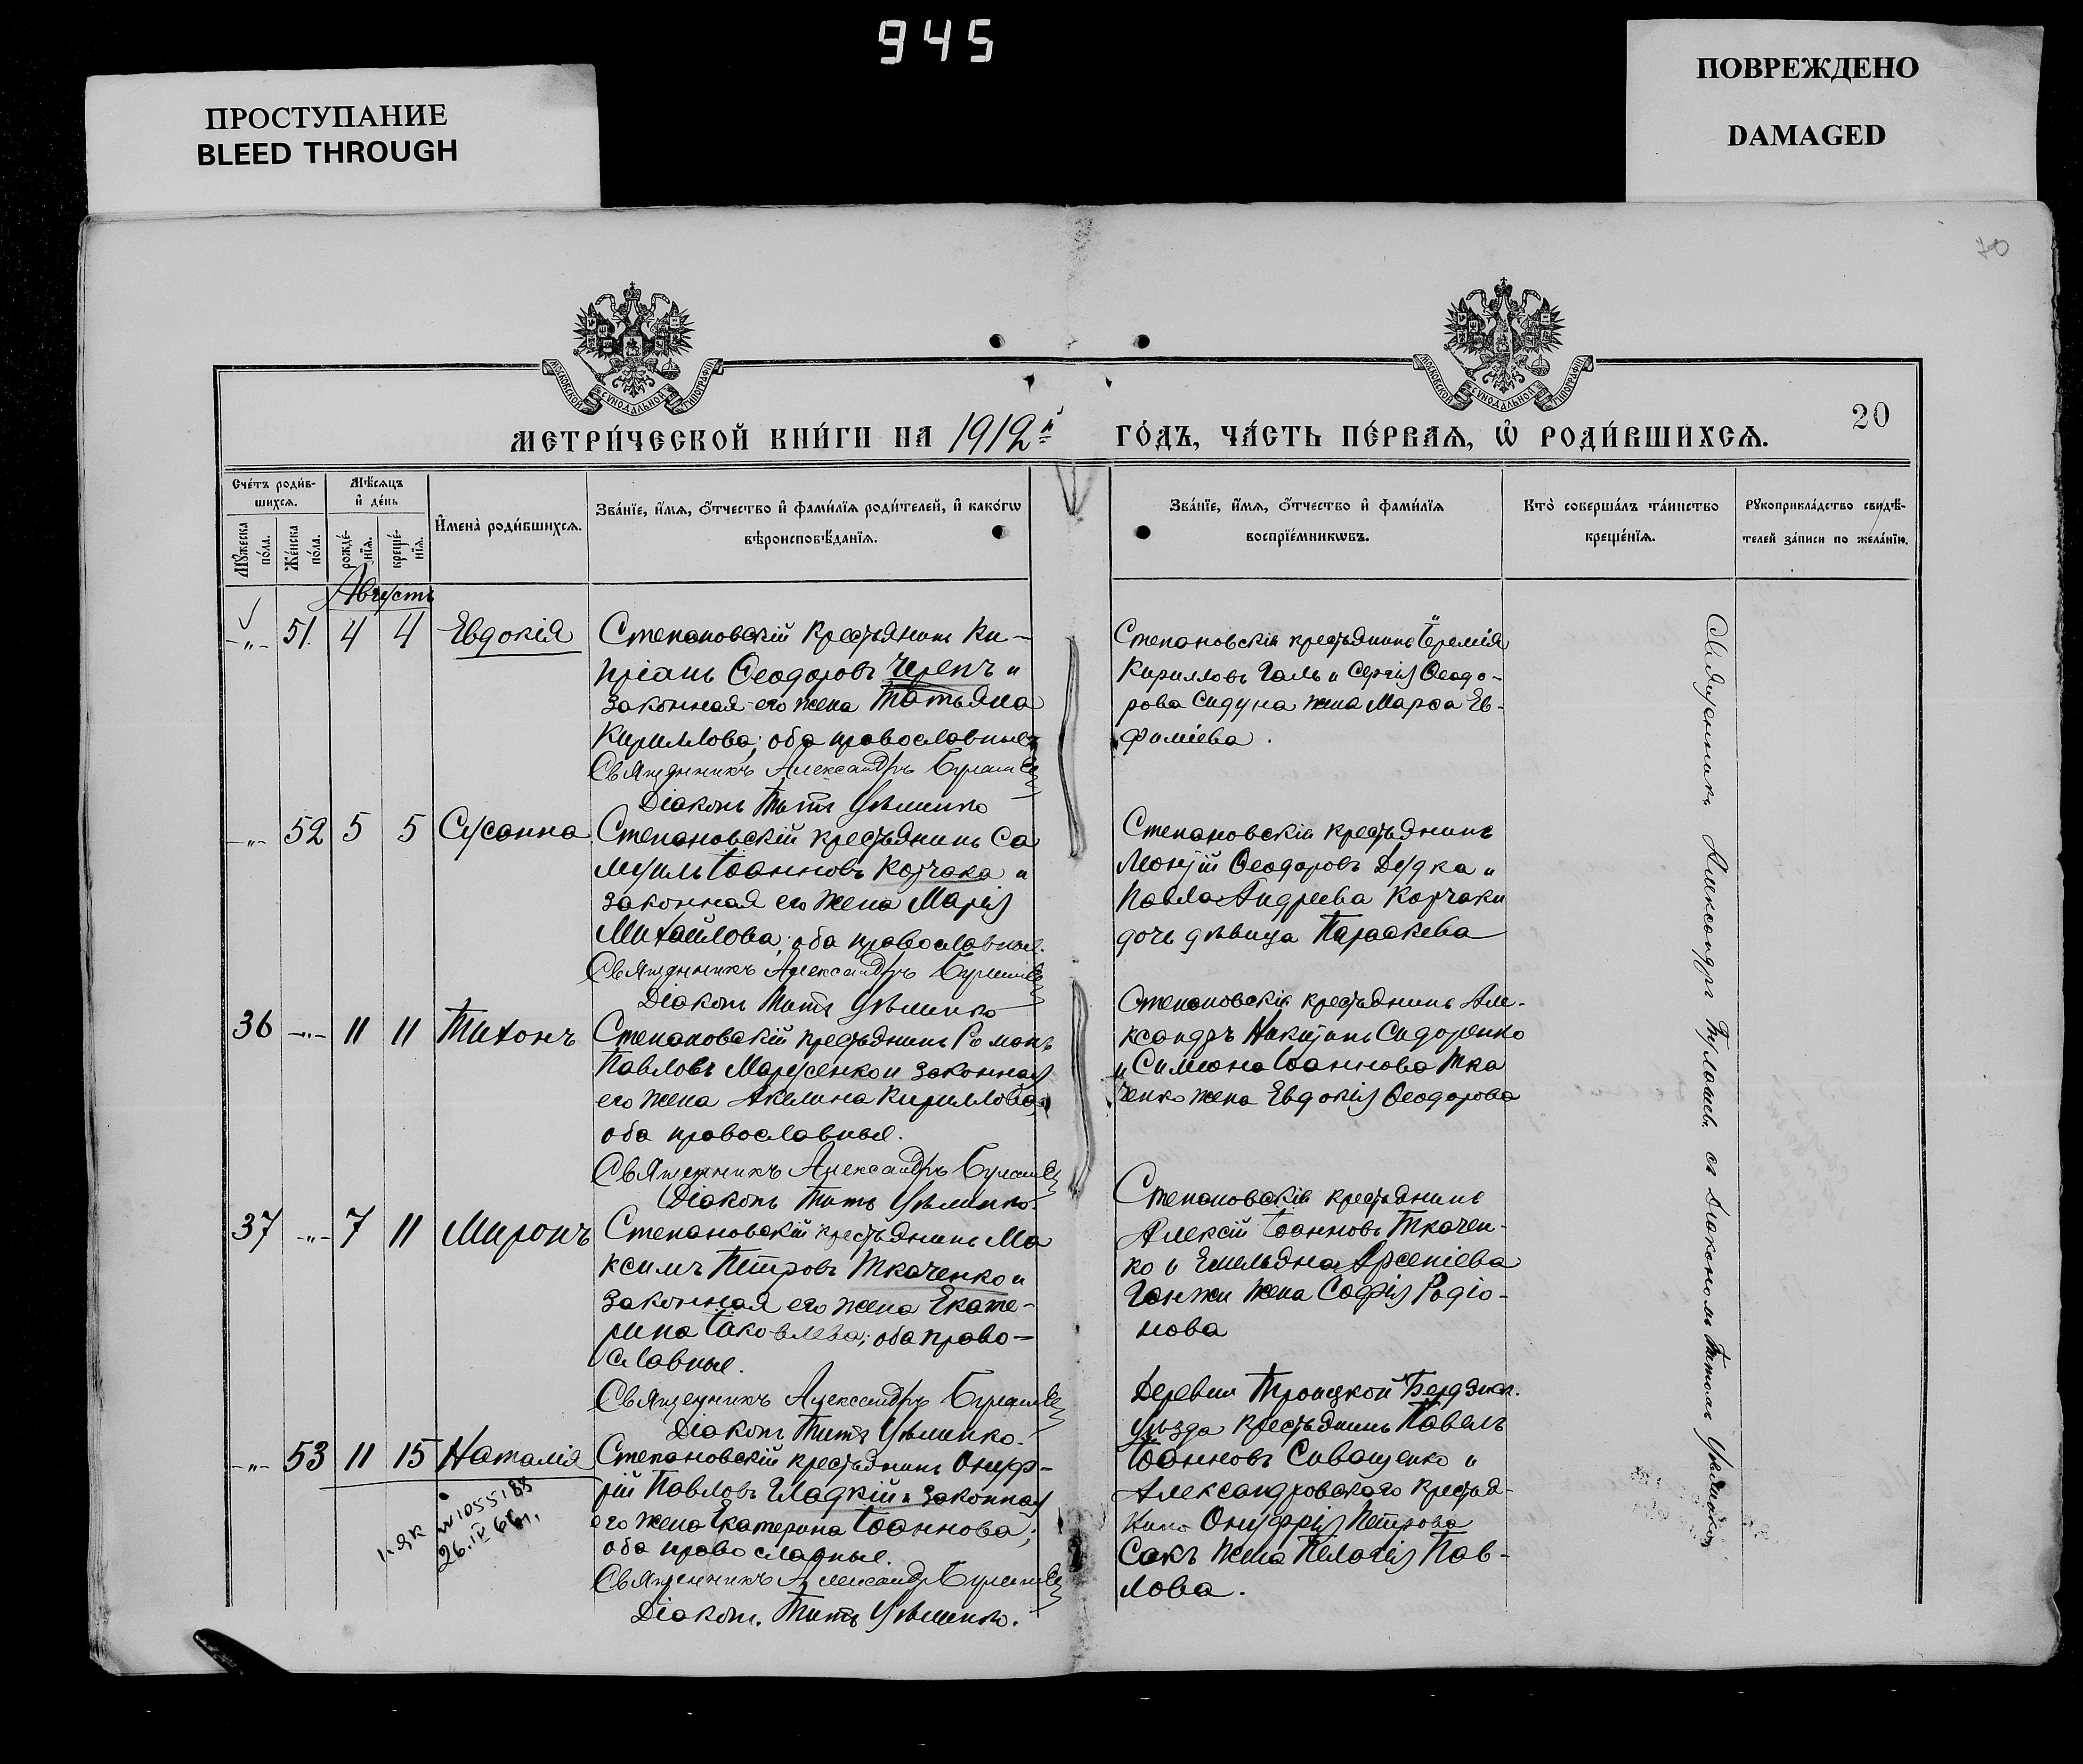 945
ПРОСТУПАНИЕ
BLEED THROUGH
ПОВРЕЖДЕНО
DAMAGED
70
МОСКОВСКОЙ СѴНОДАЛЬНОЙ ТИПОГРАФІИ
МОСКОВСКОЙ СѴНОДАЛЬНОЙ ТИПОГРАФІИ
МЕТРИ́ЧЕСКОЙ КНИ́ГИ НА 1912й
ГО́ДЪ, ЧА́СТЬ ПЕ́РВАѦ, Ѡ҆ РОДИ́ВШИХСѦ.
20
Сче́тъ роди́в-
шихсѧ.
Мѣ́сѧцъ
и҆ де́нь
Мꙋ́жеска по́ла.
Же́нска по́ла.
рожде́-нїѧ.
креще́-нїѧ.
И҆мена̀ роди́вшихсѧ.
Зва́нїе, и҆́мѧ, ѻ҆́тчество и҆ фами́лїѧ роди́телей, и҆ како́гѡ
вѣроисповѣ́данїѧ.
Зва́нїе, и҆́мѧ, ѻ҆́тчество и҆ фами́лїѧ
воспрїе́мникѡвъ.
Кто̀ соверша́лъ та́инство
креще́нїѧ.
Рꙋкоприкла́дство свидѣ́-
телей за́писи по жела́нїю.
Августъ
-„- 51. 4 4 Евдокія
Степановскій крестьянинъ Ки-
пріанъ Ѳеодоровъ Черепъ и
законная его жена Татьяна
Кириллова; оба православные
Священникъ Александръ
Діаконъ Титъ
Степановскій крестьянинъ Іеремія
Кирилловъ Галь и Сергія Ѳеодо-
рова Сидуна жена Марѳа Ев-
фиміева.
-„- 52 5 5 Сусанна
Степановскій крестьянинъ Са
муилъ Іоанновъ Корчака и
законная его жена Марія
Михайлова; оба православные.
Священникъ Александръ
Діаконъ Титъ
Степановскій крестьянинъ
Леонтій Ѳеодоровъ Дудка и
Павла Андреева Корчаки
дочь дѣвица Параскева
36 -„- 11 11 Тихонъ
Степановскій крестьянинъ Романъ
Павловъ Марусенко и законная
его жена Акилина Кириллова,
оба православные.
Священникъ Александръ
Діаконъ Титъ
Степановскій крестьянинъ Але-
ксандръ Никитинъ Сидоренко
и Симеона Іоаннова Тка
ченко жена Евдокія Ѳеодорова
37 -„- 7 11 Миронъ
Степановскій крестьянинъ Ма
ксимъ Петровъ Ткаченко и
законная его жена Екате-
рина Іаковлева; оба право-
славные.
Священникъ Александръ
Діаконъ Титъ
Степановскій крестьянинъ
Алексій Іоанновъ Ткачен-
ко и Емельяна Арсеніева
Ганжи жена Софія Родіо-
нова
-„- 53 11 15 Наталія
Степановскій крестьянинъ Онуф-
рій Павловъ Гладкій и законная
его жена Екатерина Іоаннова;
оба православные.
Священникъ Александръ
Діаконъ Титъ
Деревни Троицкой Бердянск.
уѣзда крестьянинъ Павелъ
Іоанновъ Сиващенко и
Александровскаго крестья-
нина Онуфрія Петрова
Сакъ жена Пелагія Пав-
лова.
26.IV 66г.
Священникъ Александръ съ Діакономъ Титомъ